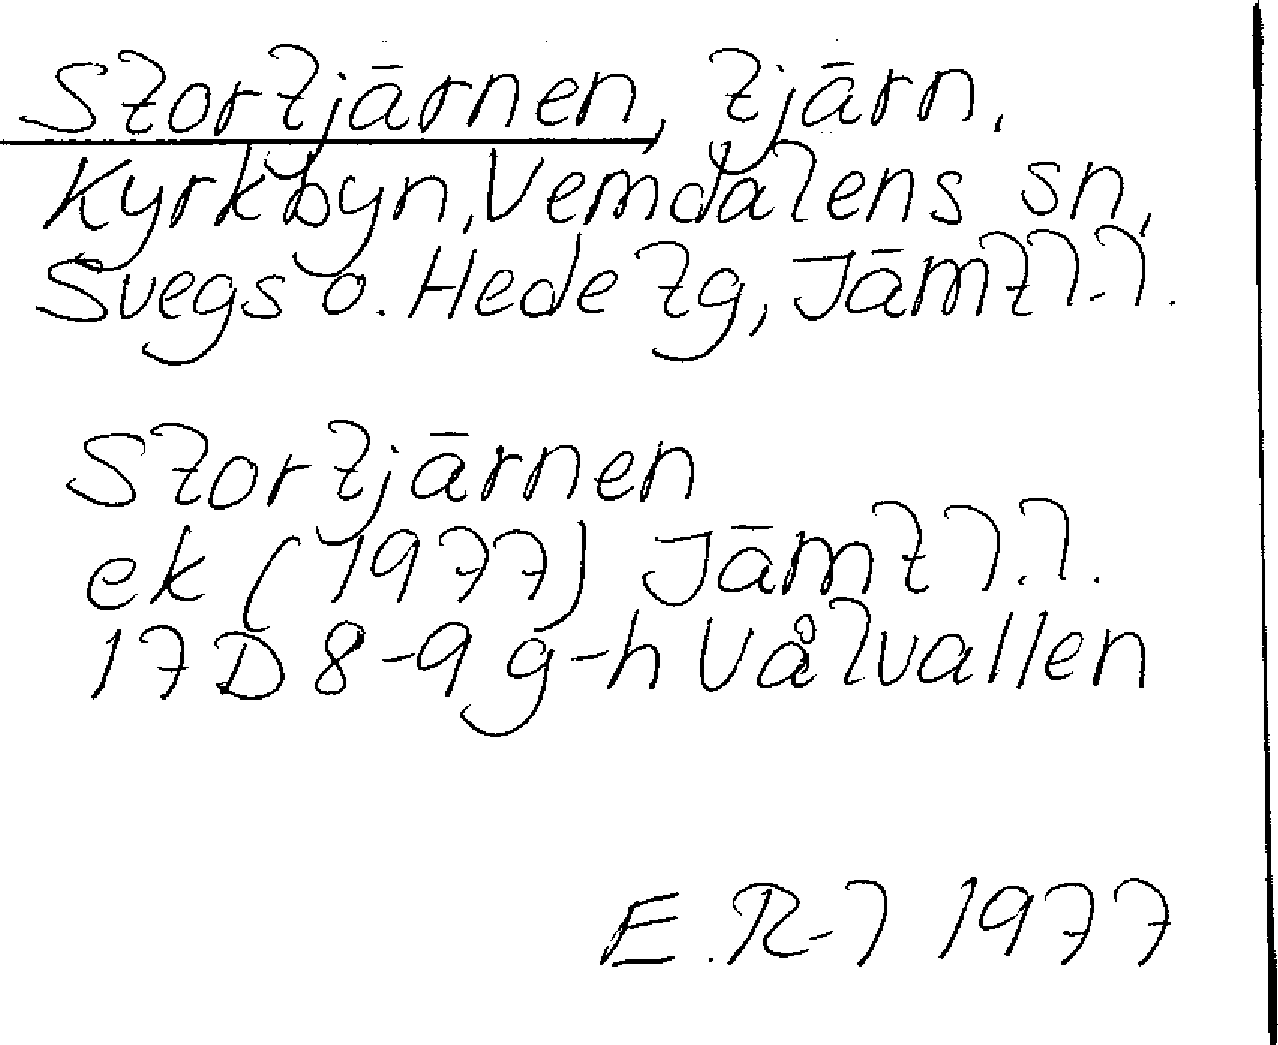 Stortjärnen, tjärn,
Kyrkbyn, Vemdalens sn,
Svegs o. Hede tg, Jämtl.l.
Stortjärnen
ek (1977) Jämtl.l.
17D 8-9 g-h Vålvallen
E.R-l 1977